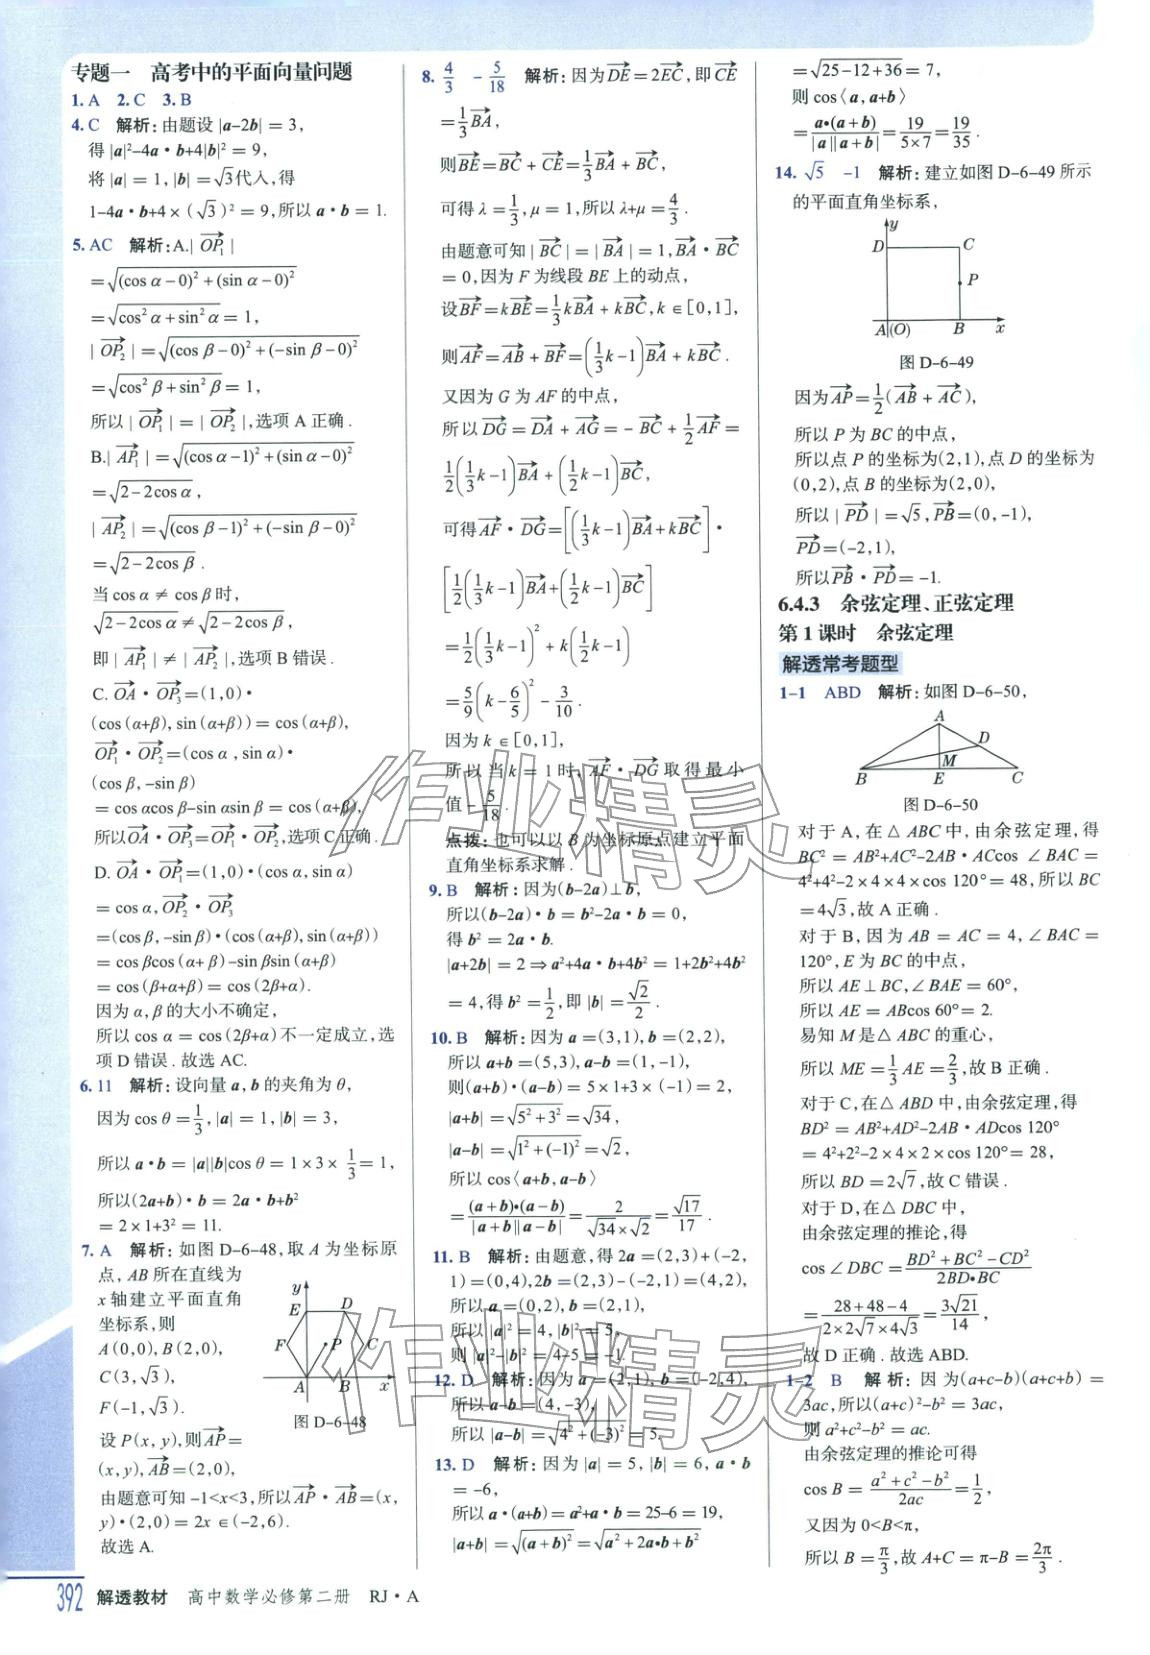 专题一 高考中的平面向量问题
1. A 2. C 3. B
4. C 解析:由题设 |a-2b| = 3,
得 |a|²-4a·b+4|b|² = 9,
将 |a| = 1, |b| = √3代入,得
1-4a·b+4×(√3)² = 9,所以 a·b = 1.
5. AC 解析:A.|OP₁→|
=√((cos α-0)²+(sin α-0)²)
=√(cos²α+sin²α) = 1,
|OP₂→| =√((cos β-0)²+(-sin β-0)²)
=√(cos²β+sin²β) = 1,
所以 |OP₁→| = |OP₂→|,选项 A 正确.
B.|AP₁→| =√((cos α-1)²+(sin α-0)²)
=√(2-2cos α),
|AP₂→| =√((cos β-1)²+(-sin β-0)²)
=√(2-2cos β).
当 cos α ≠ cos β 时,
√(2-2cos α)≠√(2-2cos β),
即 |AP₁→| ≠ |AP₂→|,选项 B 错误.
C. OA→·OP₃→=(1,0)·
(cos (α+β),sin (α+β)) = cos (α+β),
OP₁→·OP₂→=(cos α,sin α)·
(cos β,-sin β)
= cos αcos β-sin αsin β = cos (α+β),
所以OA→·OP₃→=OP₁→·OP₂→,选项 C 正确.
D. OA→·OP₁→=(1,0)·(cos α,sin α)
= cos α,OP₂→·OP₃→
=(cos β,-sin β)·(cos (α+β),sin (α+β))
= cos βcos (α+β)-sin βsin (α+β)
= cos (β+α+β) = cos (2β+α).
因为 α,β 的大小不确定,
所以 cos α = cos(2β+α)不一定成立,选
项 D 错误.故选 AC.
6. 11 解析:设向量 a,b 的夹角为 θ,
因为 cos θ=1/3,|a| = 1,|b| = 3,
所以 a·b = |a||b|cos θ = 1×3×1/3= 1,
所以(2a+b)·b = 2a·b+b²
= 2×1+3² = 11.
7. A 解析:如图 D-6-48,取 A 为坐标原
点,AB 所在直线为
x 轴建立平面直角
坐标系,则
A(0,0),B(2,0),
C(3,√3),
F(-1,√3).
设 P(x,y),则AP→=
(x,y),AB→=(2,0),
y E D F P C A B x
图 D-6-48
由题意可知 -1<x<3,所以AP→·AB→=(x,
y)·(2,0) = 2x ∈(-2,6).
故选 A.
8. 4/3 -5/18 解析:因为DE→=2EC→,即CE→
=1/3BA→,
则BE→=BC→+CE→=1/3BA→+BC→,
可得 λ=1/3,μ = 1,所以 λ+μ=4/3.
由题意可知 |BC→| = |BA→| = 1,BA→·BC→
= 0,因为 F 为线段 BE 上的动点,
设BF→=kBE→=1/3kBA→+kBC→,k∈[0,1],
则AF→=AB→+BF→=(1/3k-1)BA→+kBC→.
又因为 G 为 AF 的中点,
所以DG→=DA→+AG→=-BC→+1/2AF→=
1/2(1/3k-1)BA→+(1/2k-1)BC→,
可得AF→·DG→=[(1/3k-1)BA→+kBC→]·
[1/2(1/3k-1)BA→+(1/2k-1)BC→]
=1/2(1/3k-1)²+k(1/2k-1)
=5/9(k-6/5)²-3/10.
因为 k∈[0,1],
所以当 k = 1 时,AF→·DG→取得最小
值-5/18.
点拨:也可以以 B 为坐标原点建立平面
直角坐标系求解.
9. B 解析:因为(b-2a)⊥b,
所以(b-2a)·b = b²-2a·b = 0,
得 b² = 2a·b.
|a+2b| = 2⇒a²+4a·b+4b² = 1+2b²+4b²
= 4,得 b²=1/2,即 |b|=√2/2.
10. B 解析:因为 a = (3,1),b = (2,2),
所以 a+b = (5,3),a-b = (1,-1),
则(a+b)·(a-b) = 5×1+3×(-1) = 2,
|a+b|=√(5²+3²)=√34,
|a-b|=√(1²+(-1)²)=√2,
所以 cos〈a+b,a-b〉
=(a+b)·(a-b)/|a+b||a-b|=2/(√34×√2)=√17/17.
11. B 解析:由题意,得 2a = (2,3)+(-2,
1)=(0,4),2b = (2,3)-(-2,1)=(4,2),
所以 a = (0,2),b = (2,1),
所以 |a|² = 4,|b|² = 5,
则 |a|²-|b|² = 4-5 = -1.
12. D 解析:因为 a = (2,1),b = (-2,4),
所以 a-b = (4,-3),
所以 |a-b|=√(4²+(-3)²)= 5.
13. D 解析:因为 |a| = 5,|b| = 6,a·b
= -6,
所以 a·(a+b) = a²+a·b = 25-6 = 19,
|a+b|=√((a+b)²)=√(a²+2a·b+b²)
=√(25-12+36)= 7,
则 cos〈a,a+b〉
=a·(a+b)/|a||a+b|=19/(5×7)=19/35.
14. √5 -1 解析:建立如图 D-6-49 所示
的平面直角坐标系,
y D C P A(O) B x
图 D-6-49
因为AP→=1/2(AB→+AC→),
所以 P 为 BC 的中点,
所以点 P 的坐标为(2,1),点 D 的坐标为
(0,2),点 B 的坐标为(2,0),
所以 |PD→| =√5,PB→=(0,-1),
PD→=(-2,1),
所以PB→·PD→=-1.
6.4.3 余弦定理、正弦定理
第 1 课时 余弦定理
解透常考题型
1-1 ABD 解析:如图 D-6-50,
A D M B E C
图 D-6-50
对于 A,在△ABC 中,由余弦定理,得
BC² = AB²+AC²-2AB·ACcos ∠BAC =
4²+4²-2×4×4×cos 120° = 48,所以 BC
= 4√3,故 A 正确.
对于 B,因为 AB = AC = 4,∠BAC =
120°,E 为 BC 的中点,
所以 AE⊥BC,∠BAE = 60°,
所以 AE = ABcos 60°= 2.
易知 M 是△ABC 的重心,
所以 ME=1/3AE=2/3,故 B 正确.
对于 C,在△ABD 中,由余弦定理,得
BD² = AB²+AD²-2AB·ADcos 120°
= 4²+2²-2×4×2×cos 120° = 28,
所以 BD = 2√7,故 C 错误.
对于 D,在△DBC 中,
由余弦定理的推论,得
cos ∠DBC=(BD²+BC²-CD²)/(2BD·BC)
=(28+48-4)/(2×2√7×4√3)=3√21/14,
故 D 正确.故选 ABD.
1-2 B 解析:因为(a+c-b)(a+c+b) =
3ac,所以(a+c)²-b² = 3ac,
则 a²+c²-b² = ac.
由余弦定理的推论可得
cos B=(a²+c²-b²)/2ac=1/2,
又因为 0<B<π,
所以 B=π/3,故 A+C = π-B=2π/3.
392 解透教材 高中数学必修第二册 RJ·A
作业精灵
作业精灵